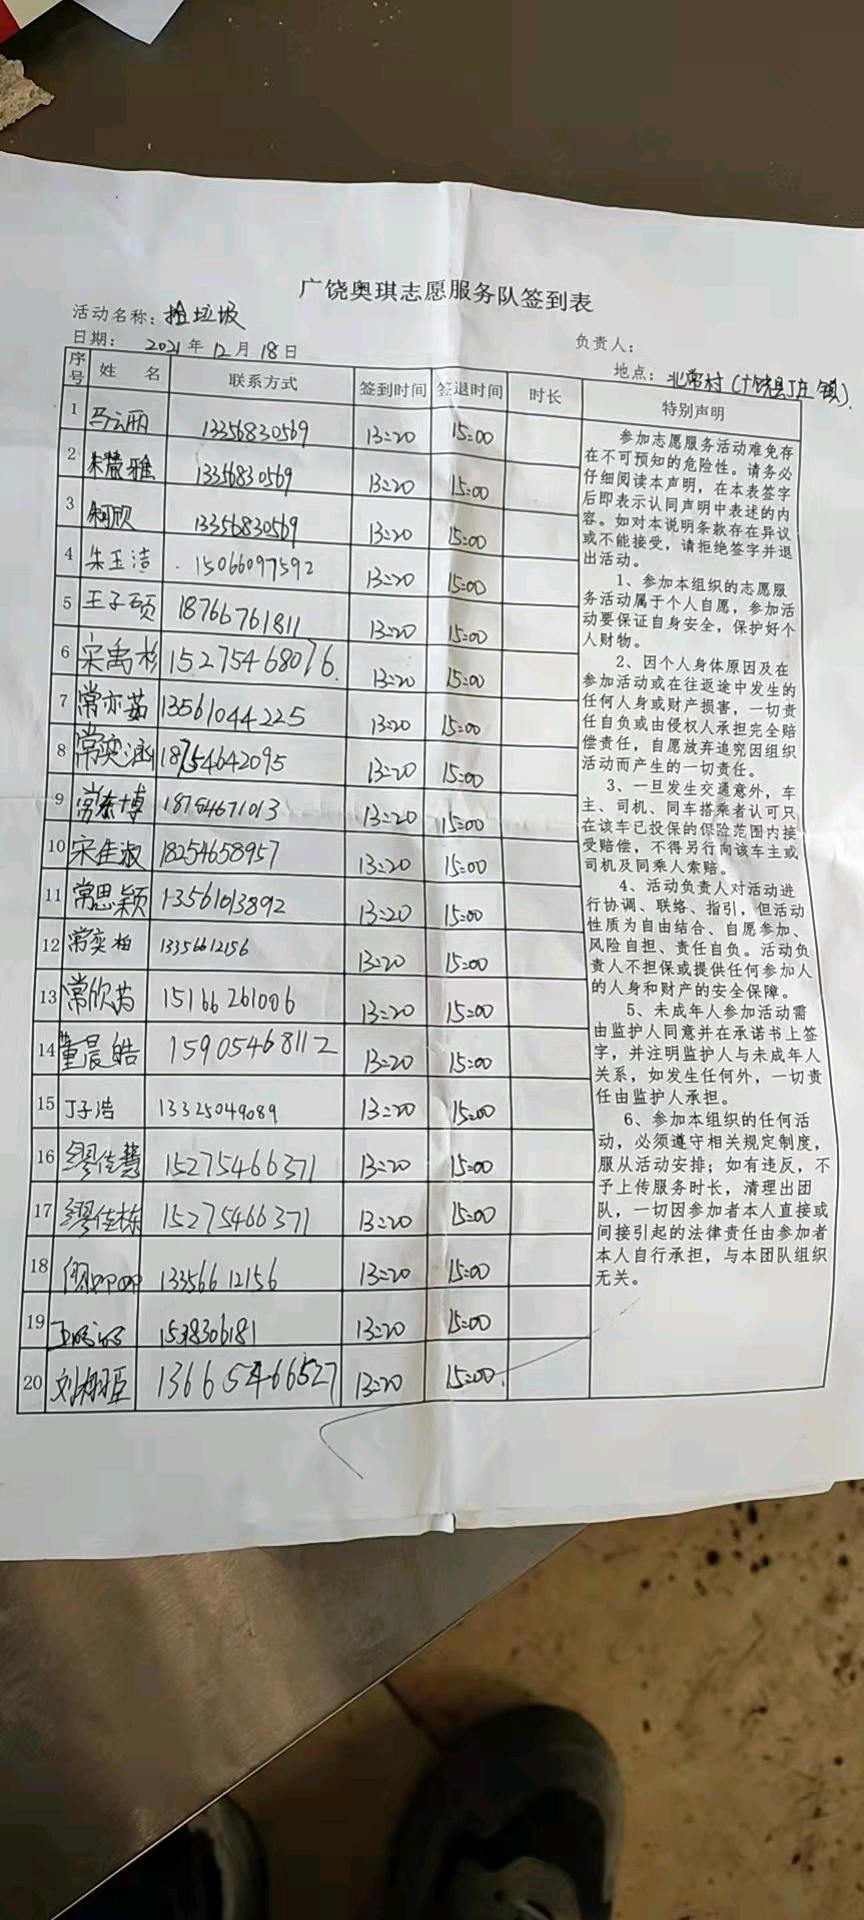 广饶奥琪志愿服务队签到表
活动名称：捡垃圾
负责人：
日期： 2021年12月18日
地点：北常村（广饶县丁庄镇）
序号 姓名 联系方式 签到时间 签退时间 时长 特别声明
1 马云丽 13356830569 13:20 15:00
2 朱慧雅 13356830569 13:20 15:00
3 13356830569 13:20 15:00
4 朱玉洁 15066097592 13:20 15:00
5 王子硕 18766761811 13:20 15:00
6 宋禹杉 15275468076 13:20 15:00
7 常亦茹 13561044225 13:20 15:00
8 常奕涵 18754642095 13:20 15:00
9 常泰博 18754671013 13:20 15:00
10 宋佳淑 18254658957 13:20 15:00
11 常思颖 13561013892 13:20 15:00
12 常奕柏 13356612156 13:20 15:00
13 常欣茹 15166261006 13:20 15:00
14 董晨皓 15905468112 13:20 15:00
15 丁子浩 13325049089 13:20 15:00
16 缪佳慧 15275466371 13:20 15:00
17 缪佳栋 15275466371 13:20 15:00
18 13356612156 13:20 15:00
19 13:20 15:00
20 13665466527 13:20 15:00
参加志愿服务活动难免存
在不可预知的危险性。请务必
仔细阅读本声明，在本表签字
后即表示认同声明中表述的内
容。如对本说明条款存在异议
或不能接受，请拒绝签字并退
出活动。
1、参加本组织的志愿服
务活动属于个人自愿，参加活
动要保证自身安全，保护好个
人财物。
2、因个人身体原因及在
参加活动或在往返途中发生的
任何人身或财产损害，一切责
任自负或由侵权人承担完全赔
偿责任，自愿放弃追究因组织
活动而产生的一切责任。
3、一旦发生交通意外，车
主、司机、同车搭乘者认可只
在该车已投保的保险范围内接
受赔偿，不得另行向该车主或
司机及同乘人索赔。
4、活动负责人对活动进
行协调、联络、指引，但活动
性质为自由结合、自愿参加、
风险自担、责任自负。活动负
责人不担保或提供任何参加人
的人身和财产的安全保障。
5、未成年人参加活动需
由监护人同意并在承诺书上签
字，并注明监护人与未成年人
关系，如发生任何外，一切责
任由监护人承担。
6、参加本组织的任何活
动，必须遵守相关规定制度，
服从活动安排；如有违反，不
予上传服务时长，清理出团
队，一切因参加者本人直接或
间接引起的法律责任由参加者
本人自行承担，与本团队组织
无关。